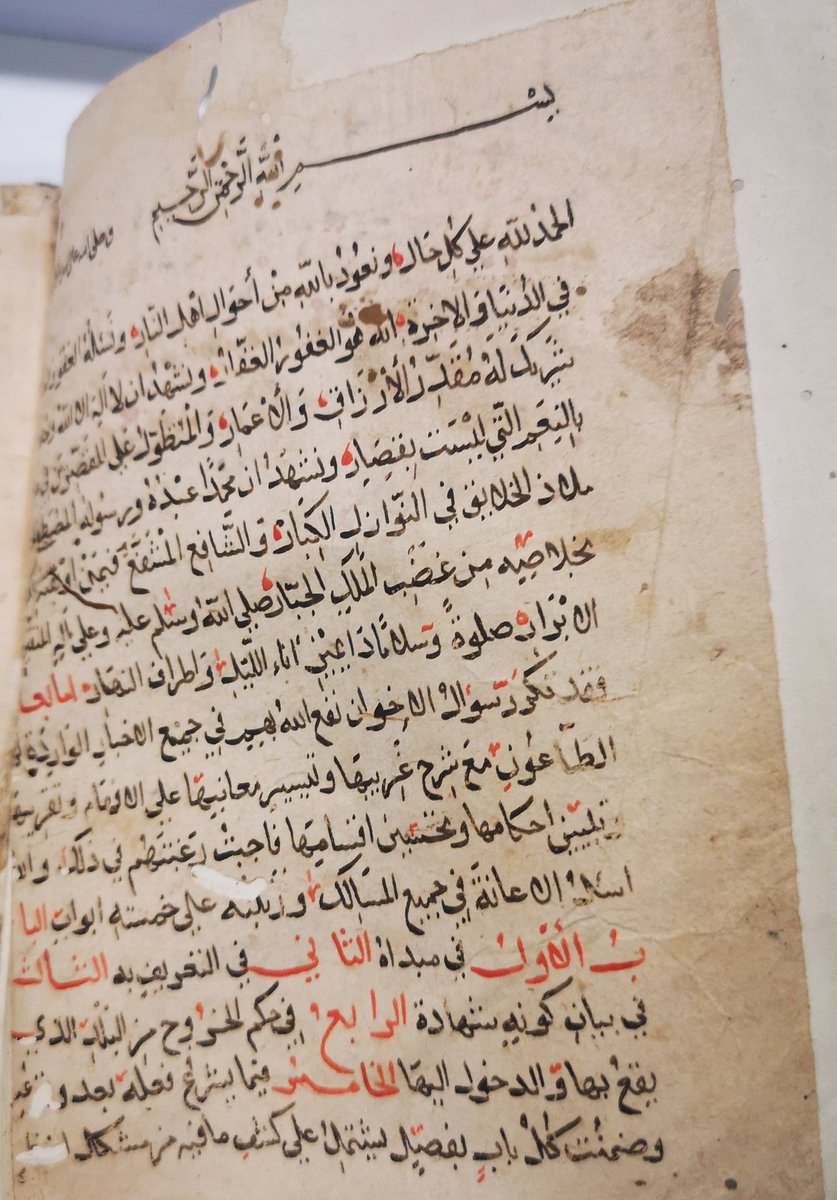 بسم الله الرحمن الرحيم وصلى الله على
الحمد لله على كل حال ونعوذ بالله من أحوال اهل النار ونسئله العفو
في الدنيا والاخرة انه هو الغفور الغفار ونشهد ان لا اله الا الله
شريك له مقدر الأرزاق والأعمار والمتطول على المقصرين
بالنعم التي ليست بقصار ونشهد ان محمدا عبده ورسوله المصطفى
ملاذ الخلايق في النوازل الكبار والشافع المشفع فيمن
بخلاصه من غضب الملك الجبار صلى الله وسلم عليه وعلى آله
الابرار صلوة وسلاما دايمين اناء الليل واطراف النهار اما بعد
فقد تكرر سؤال الاخوان نفع الله بهم في جميع الاخبار الواردة في
الطاعون مع شرح غريبها وتيسير معانيها على الافهام
وتبيين احكامها وتحسين اقسامها فاجبت رغبتهم في ذلك
اسئل الاعانة في جميع المسالك ورتبته على خمسة ابواب البا
ب الأول في مبداه الثاني في التعريف به الثالث
في بيان كونه شهادة الرابع في حكم الخروج من البلد الذي
يقع بها والدخول اليها الخامس فيما يشرع فعله بعد
وضمنت كل باب بفصيل يشتمل على كشف ما فيه من مشكل